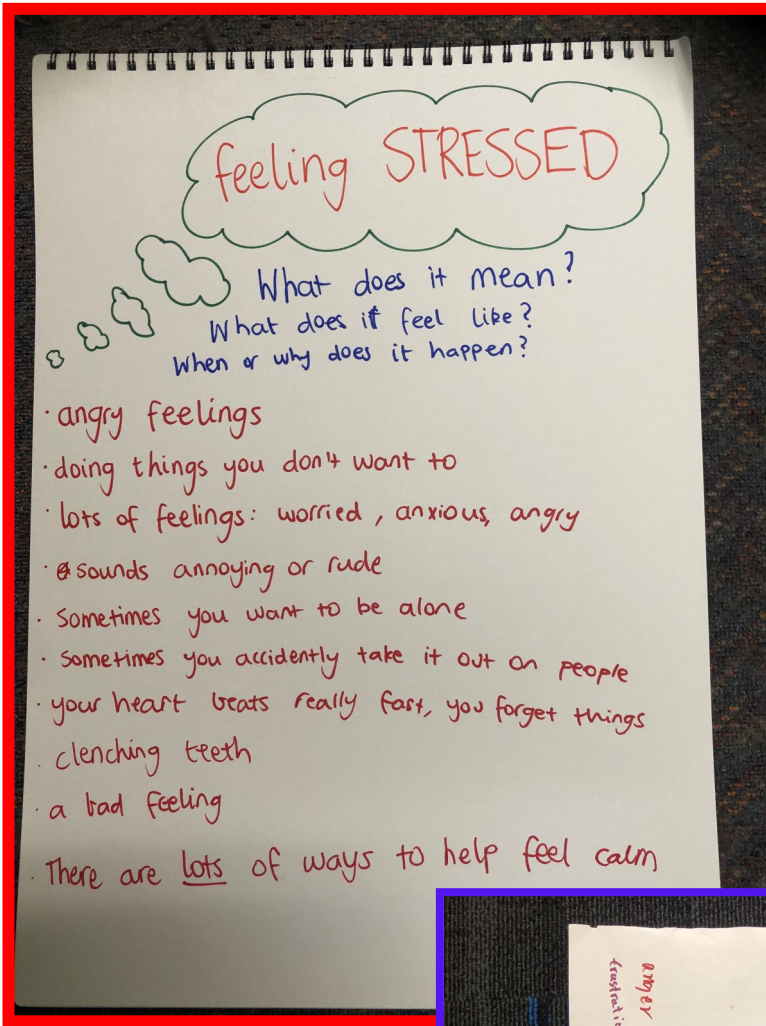 feeling STRESSED
What does it mean?
What does it feel like?
When or why does it happen?
· angry feelings
· doing things you don't want to
· lots of feelings: worried, anxious, angry
· sounds annoying or rude
· Sometimes you want to be alone
· Sometimes you accidently take it out on people
· your heart beats really fast, you forget things
· clenching teeth
· a bad feeling
· There are lots of ways to help feel calm
anger